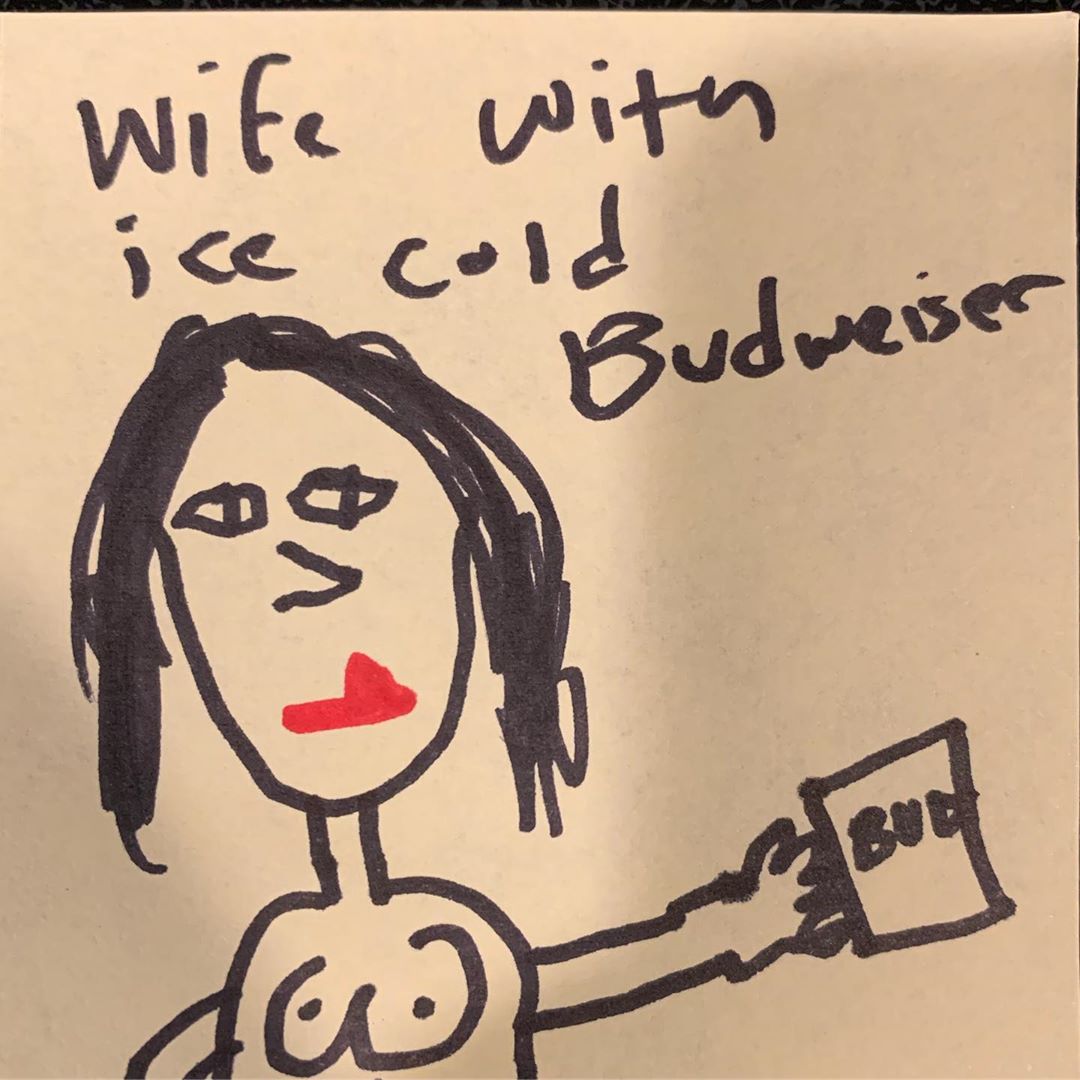 Wife with
ice cold
Budweiser
BUD